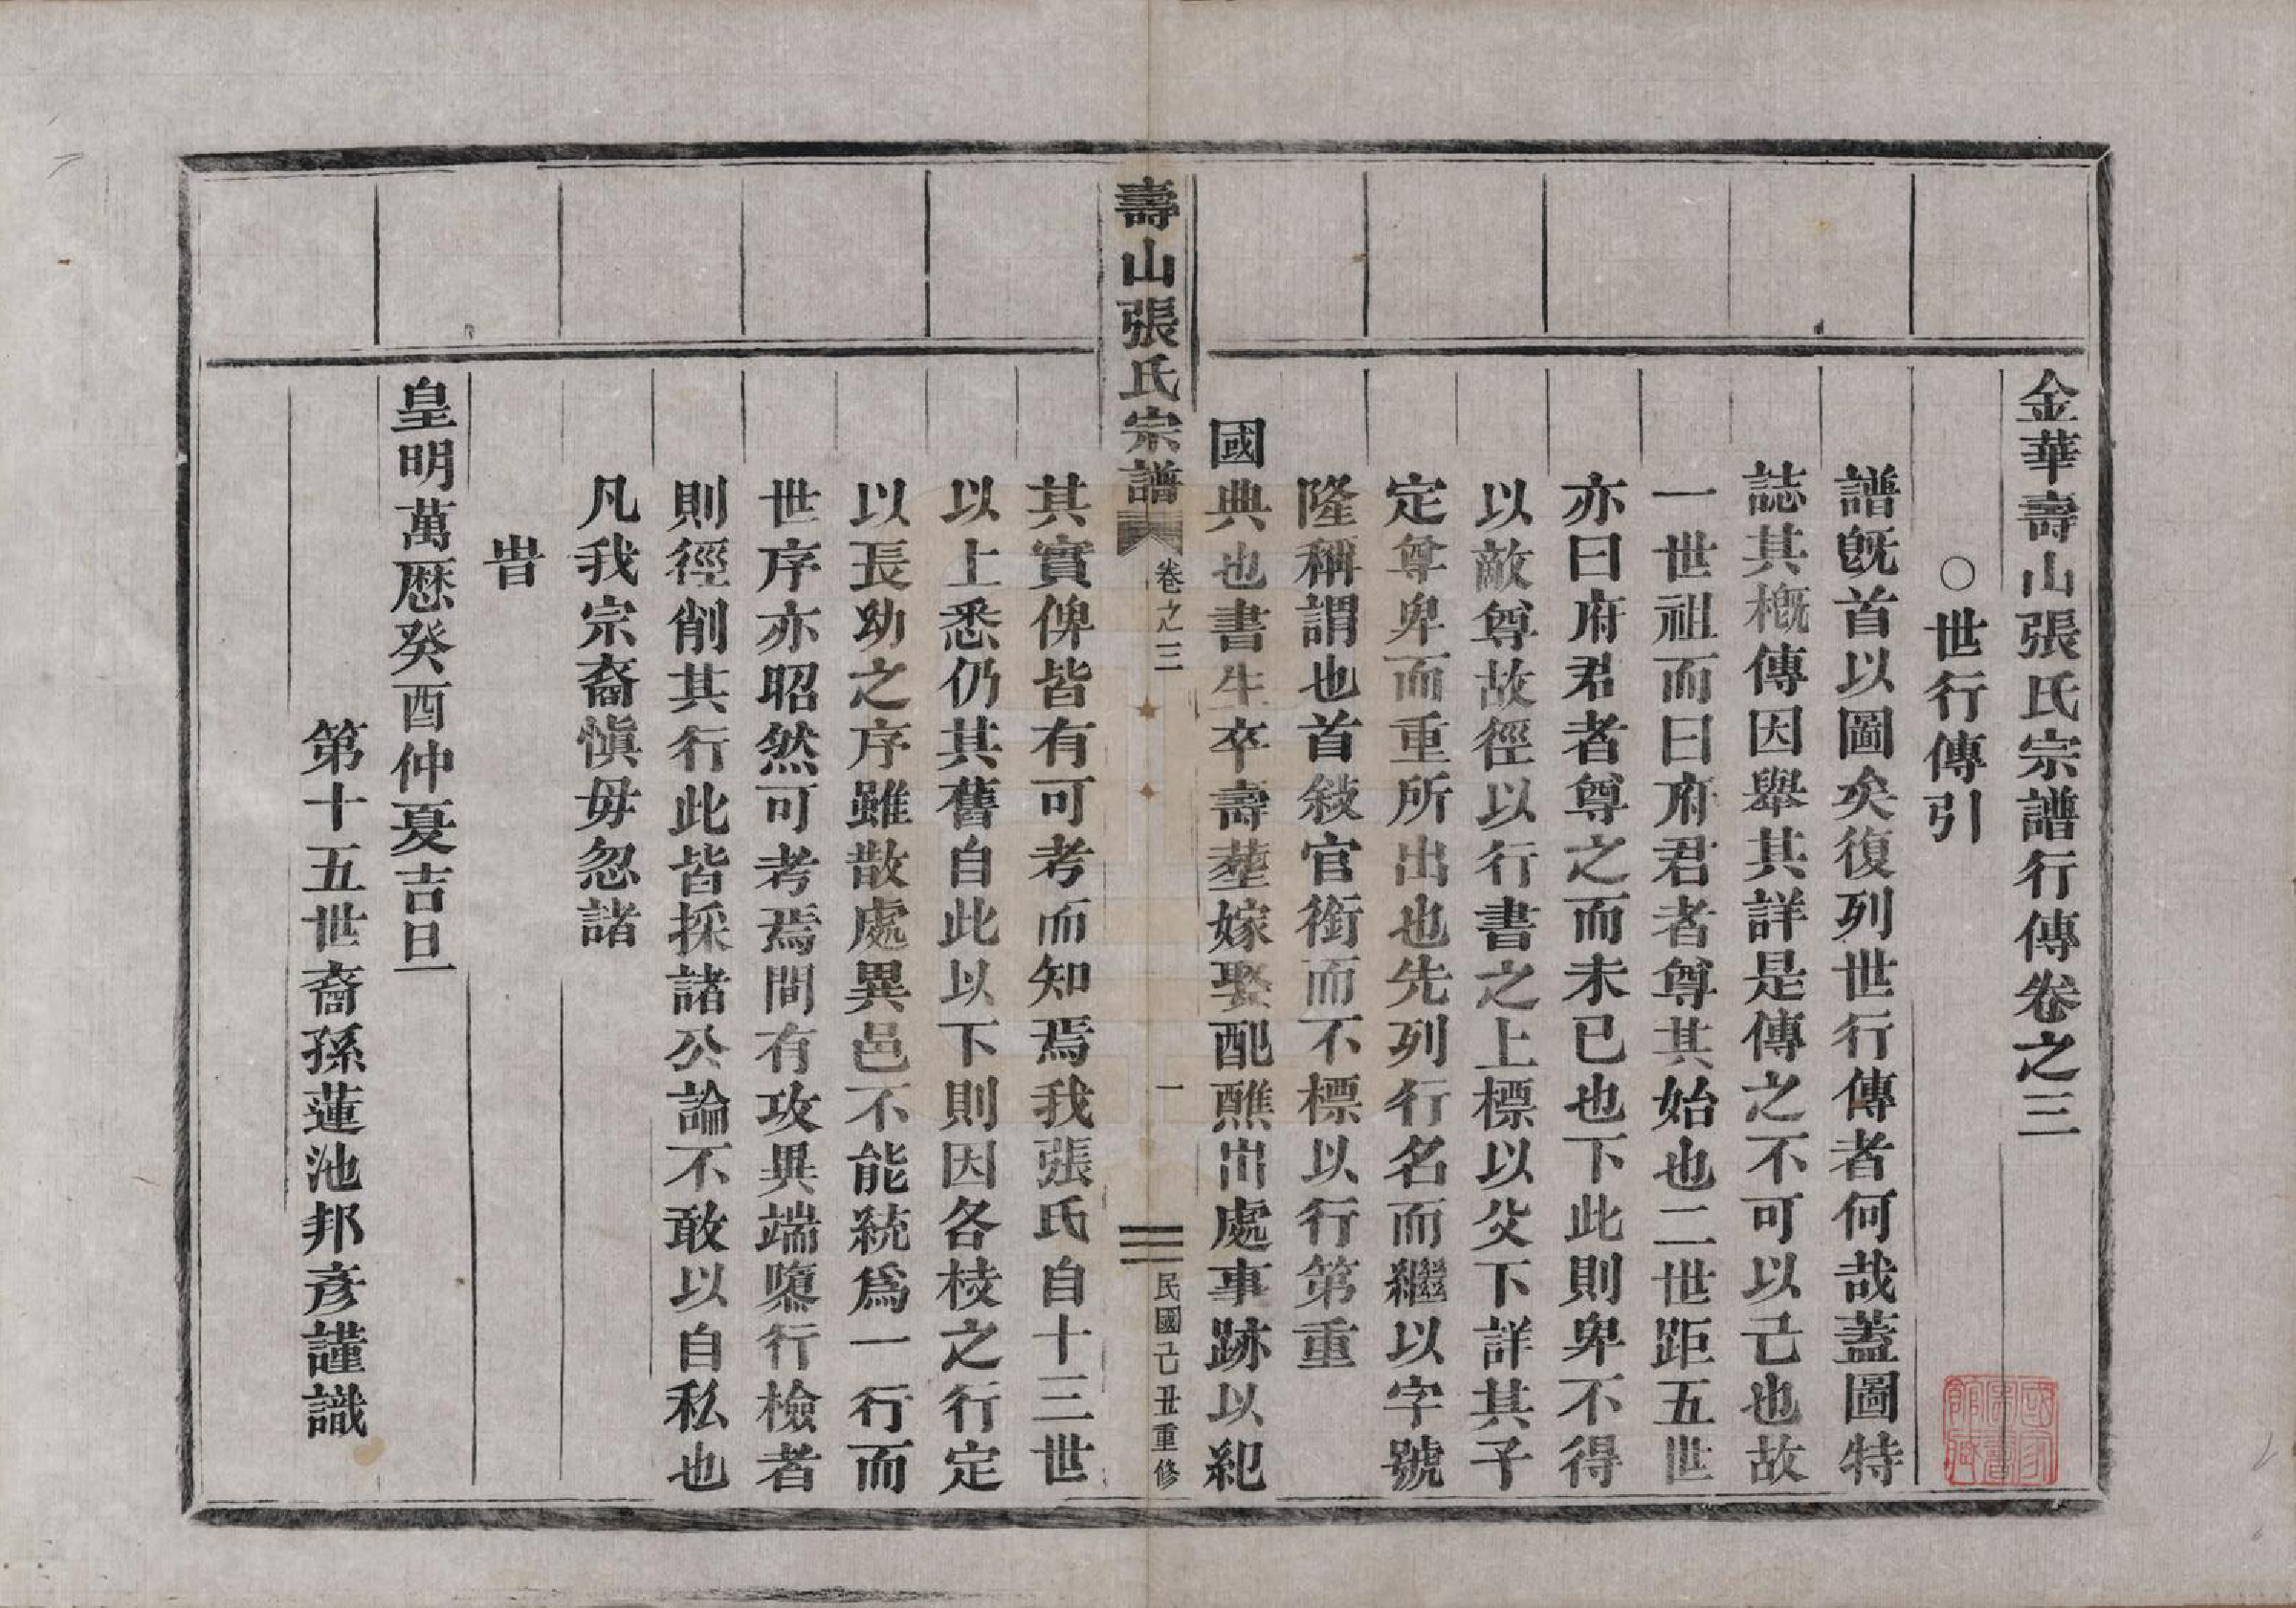 金華壽山張氏宗譜行傳卷之三
○世行傳引
譜旣首以圖矣復列世行傳者何哉蓋圖特
誌其概傳因舉其詳是傳之不可以已也故
一世祖而曰府君者尊其始也二世距五世
亦曰府君者尊之而未已也下此則卑不得
以敵尊故徑以行書之上標以父下詳其子
定尊卑而重所出也先列行名而繼以字號
隆稱謂也首敍官銜而不標以行第重
國典也書生卒壽塟嫁娶配醮出處事跡以紀
壽山張氏宗譜
卷之三
一
民國己丑重修
其實俾皆有可考而知焉我張氏自十三世
以上悉仍其舊自此以下則因各枝之行定
以長幼之序雖散處異邑不能統爲一行而
世序亦昭然可考焉間有攻異端隳行檢者
則徑削其行此皆採諸公論不敢以自私也
凡我宗裔愼毋忽諸
旹
皇明萬歷癸酉仲夏吉旦
第十五世裔孫蓮池邦彥謹識
國家圖書館藏